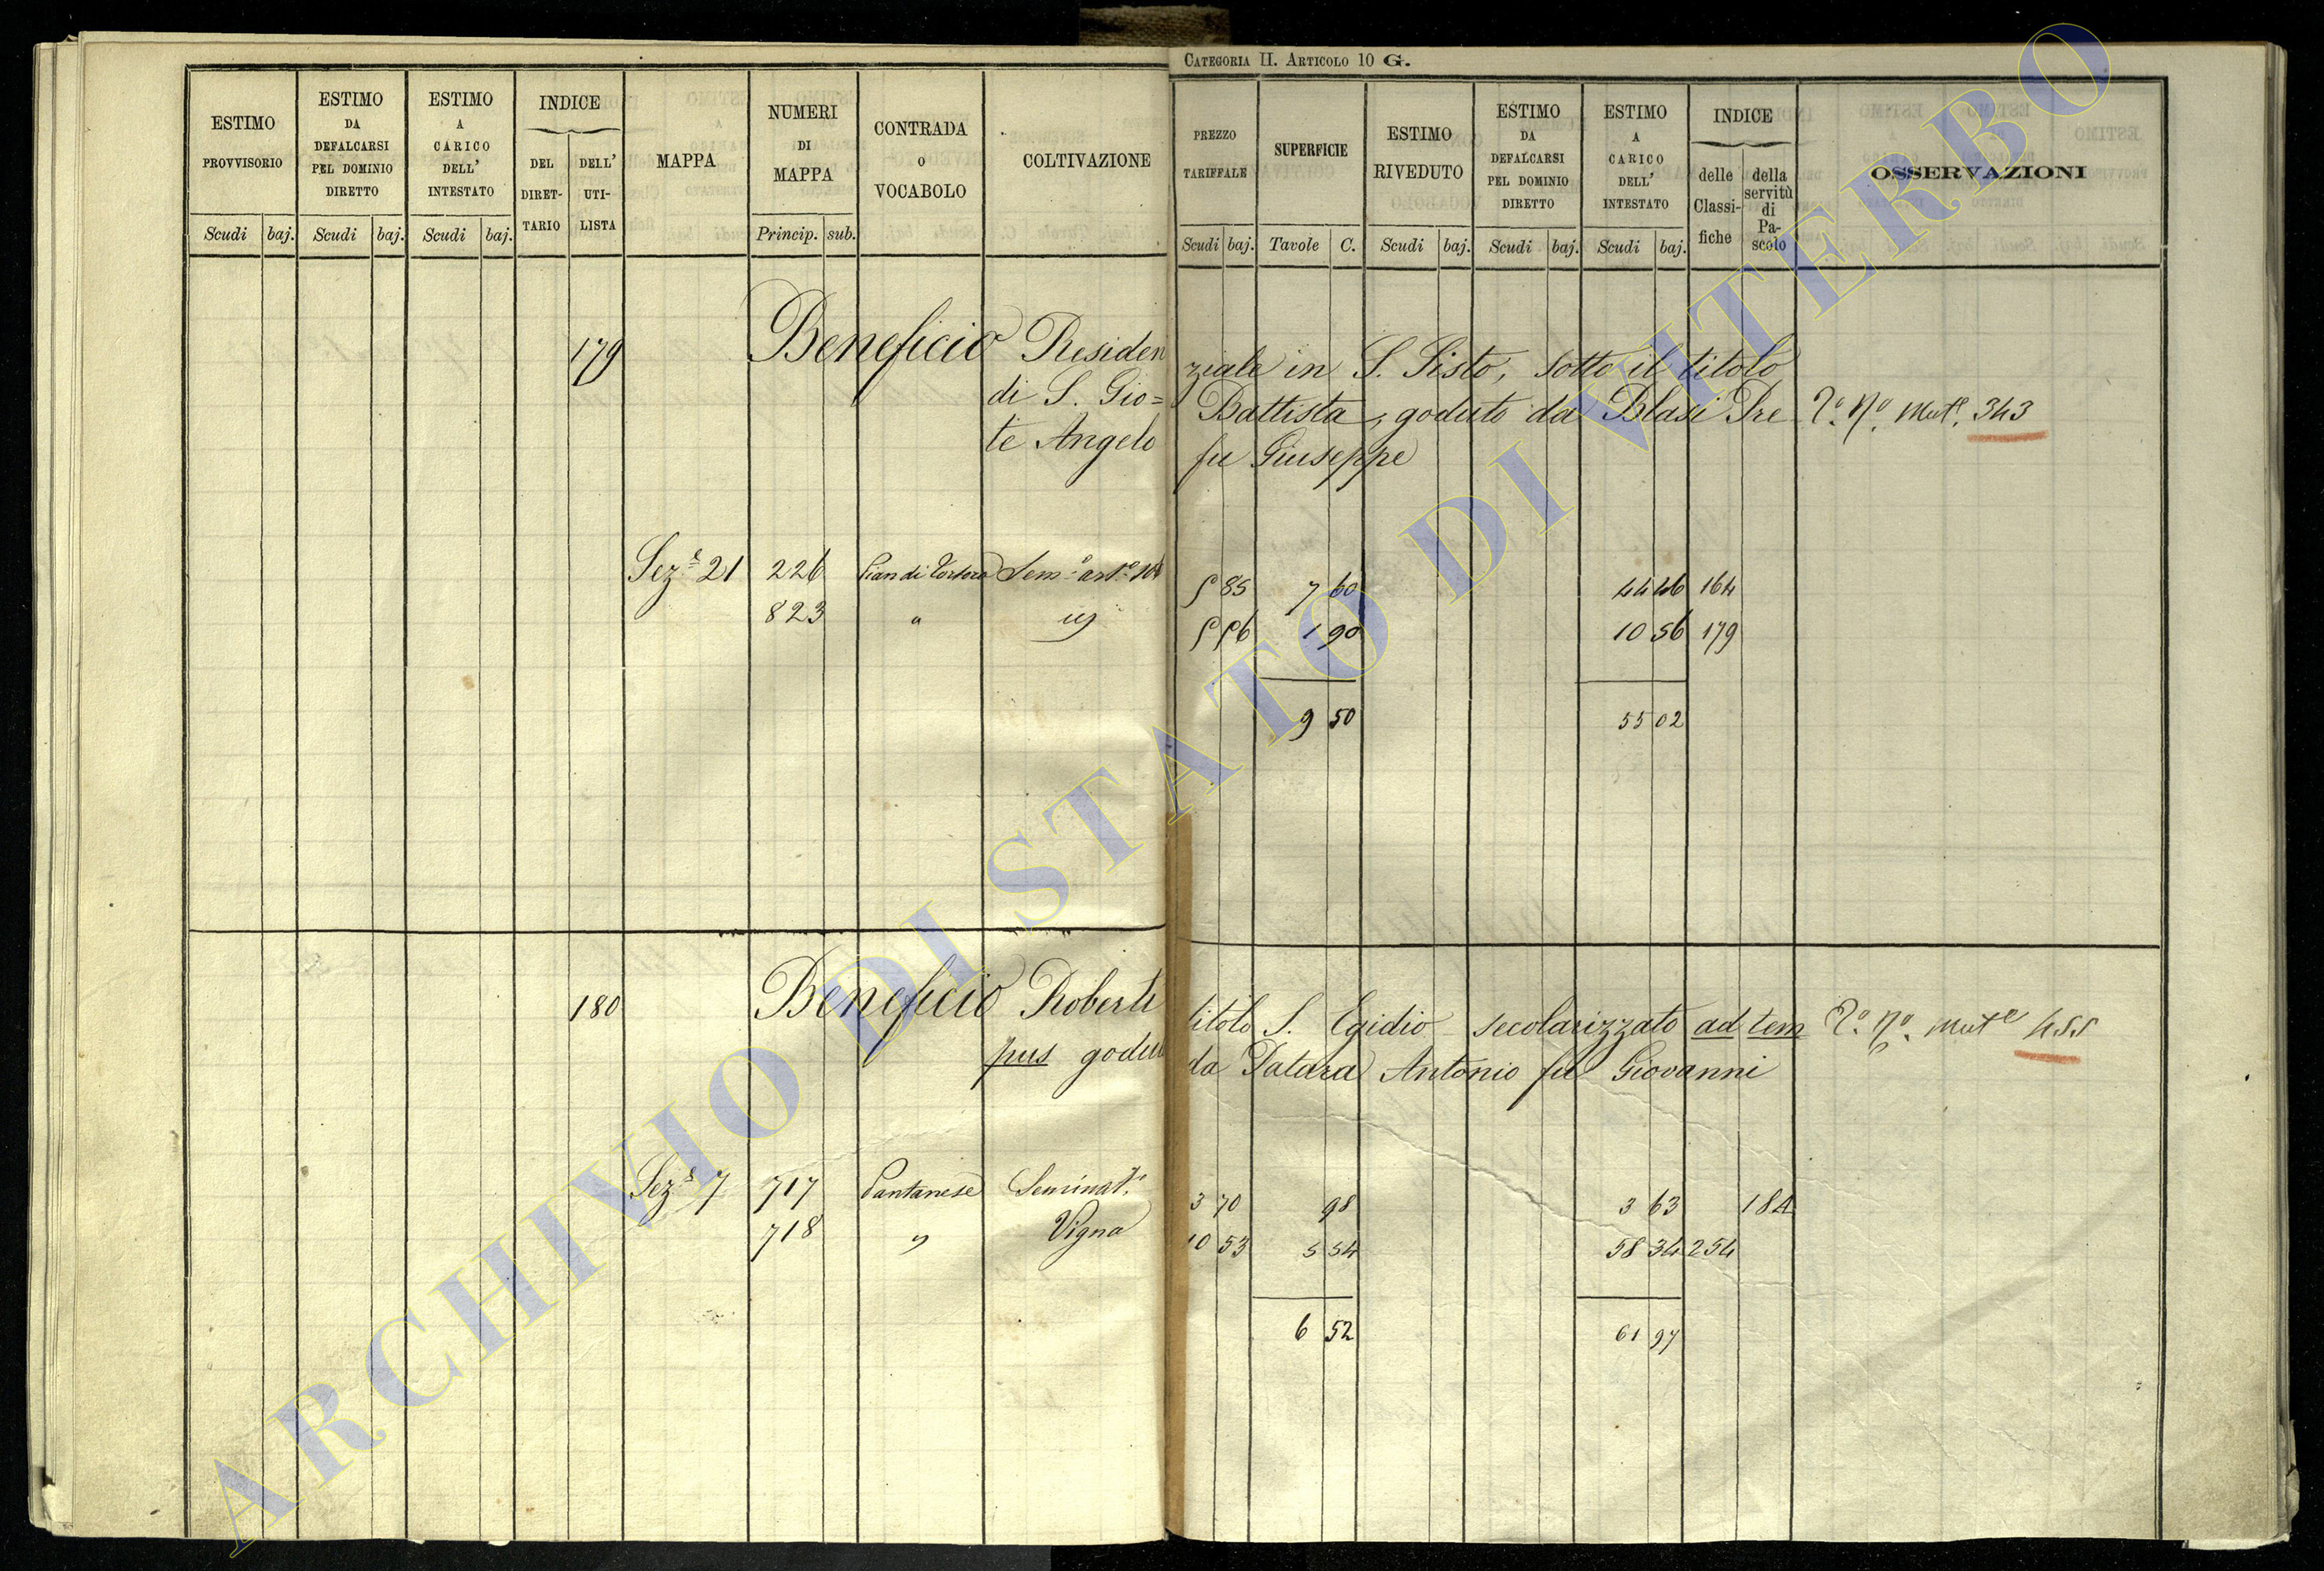 CATEGORIA II. ARTICOLO 10 G.
ESTIMO PROVVISORIO
ESTIMO DA DEFALCARSI PEL DOMINIO DIRETTO
ESTIMO A CARICO DELL' INTESTATO
INDICE
DEL DIRET-TARIO
DELL' UTI-LISTA
MAPPA
NUMERI DI MAPPA
CONTRADA O VOCABOLO
COLTIVAZIONE
PREZZO TARIFFALE
SUPERFICIE
ESTIMO RIVEDUTO
ESTIMO DA DEFALCARSI PEL DOMINIO DIRETTO
ESTIMO A CARICO DELL' INTESTATO
INDICE
delle Classi-fiche
della servitù di Pa-scolo
OSSERVAZIONI
Scudi baj. Scudi baj. Scudi baj. Princip. sub. Scudi baj. Tavole C. Scudi baj. Scudi baj. Scudi baj.
179 Beneficio Residen ziale in S. Sisto, sotto il titolo
di S. Gio= Battista, goduto da Blasi Pre Nº Mutº 343
te Angelo fu Giuseppe
Sezᵉ 21 226 Semº 85 7 60 44 46 164
823 " 1 90 10 56 179
9 50 55 02
180 Beneficio Roberti titolo S. Egidio secolarizzato ad tem Nº Mutᵉ 455
pus godu da Patara Antonio fu Giovanni
Sezᵉ 7 717 Pantanese Seminatº 3 70 98 3 63 184
718 " Vigna 10 53 5 54 58 34 254
6 52 61 97
ARCHIVIO DI STATO DI VITERBO